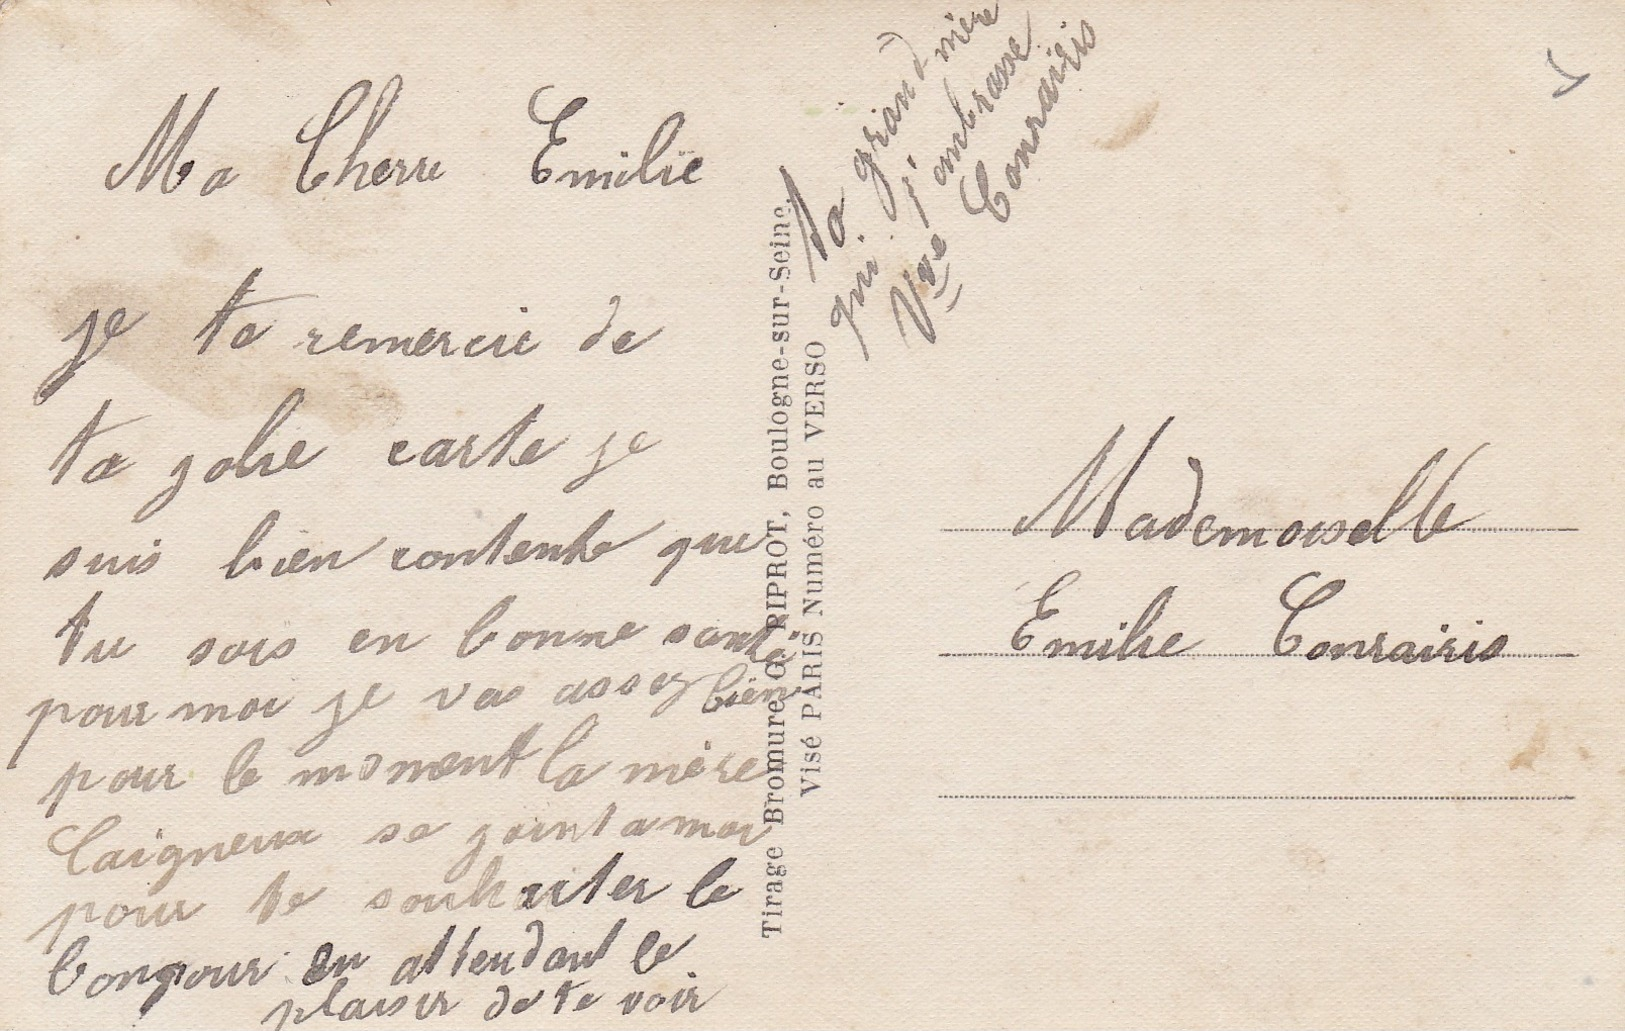 Ma Cherre Emilie
je te remercie de
ta jolie carte je
suis bien contente que
tu sois en bonne santé
pour moi je vas assez bien
pour le moment la mère
Caigneux se joint a moi
pour te souhaiter le
bonjour en attendant le
plaisir de te voir
ta grand mère
qui j'ombrasse
Vve Conrairis
Tirage Bromure G. RIPROT, Boulogne-sur-Seine.
Visé PARIS Numéro au VERSO
Mademoiselle
Emilie Conrairis